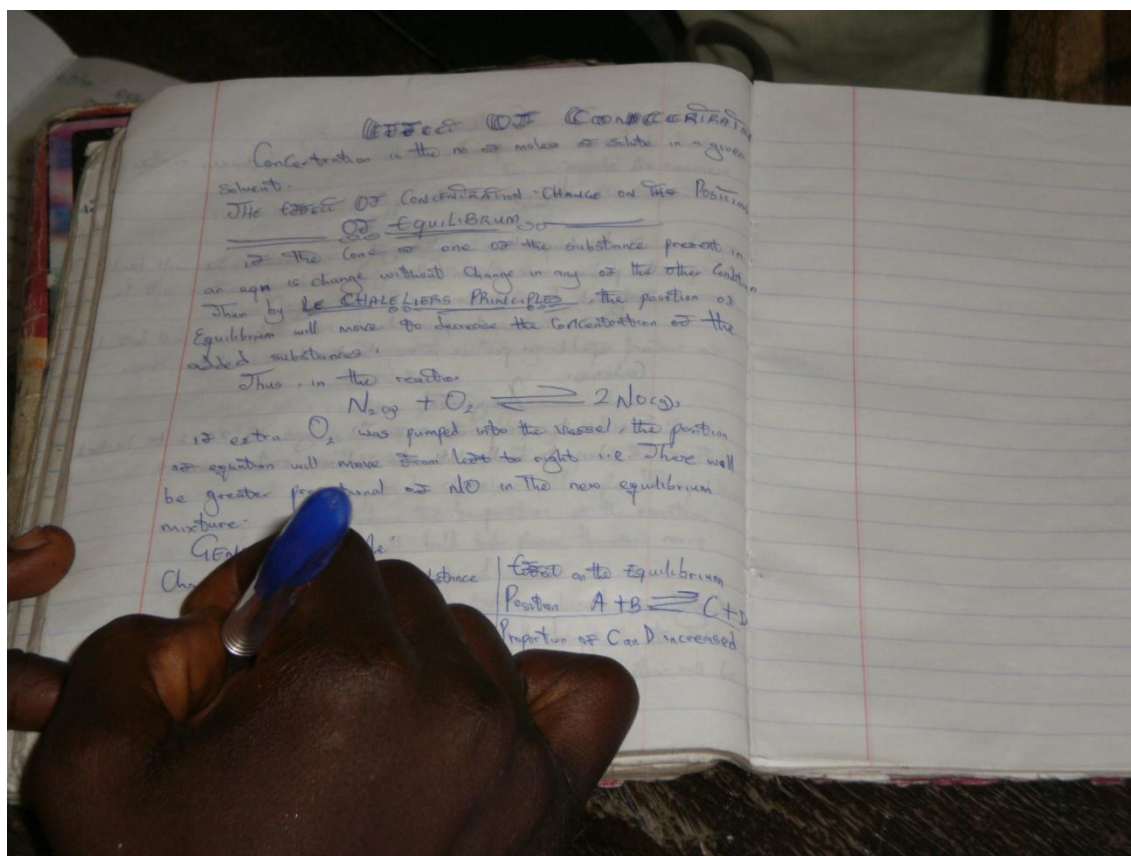 EFFECT OF CONCENTRATI
Concentration is the no of moles of solute in a given
solvent.
THE EFFECT OF CONCENTRATION CHANGE ON THE POSITION
OF EQUILIBRUM
if the Conc of one of the substance present in
an eqm is change without Change in any of the other Condition
Then by LE CHALELIERS PRINCIPLES the position of
Equilibrium will move to decrease the Concentration of the
added substances.
Thus, in the reaction
N₂(g) + O₂ ⇌ 2NO(g),
if extra O₂ was pumped into the vessel, the position
of equation will move from left to right i.e. There will
be greater of NO in the new equilibrium
mixture.
Effect on the Equilibrium
Position A + B ⇌ C + D
Proportion of C an D increased